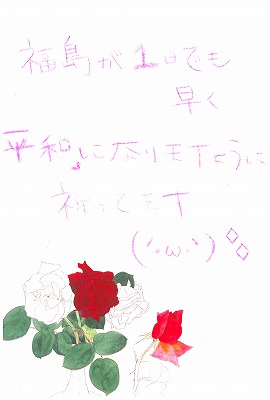 福島が1日でも
早く
平和に在りますように
祈ってます
(´･ω･`)◇◇